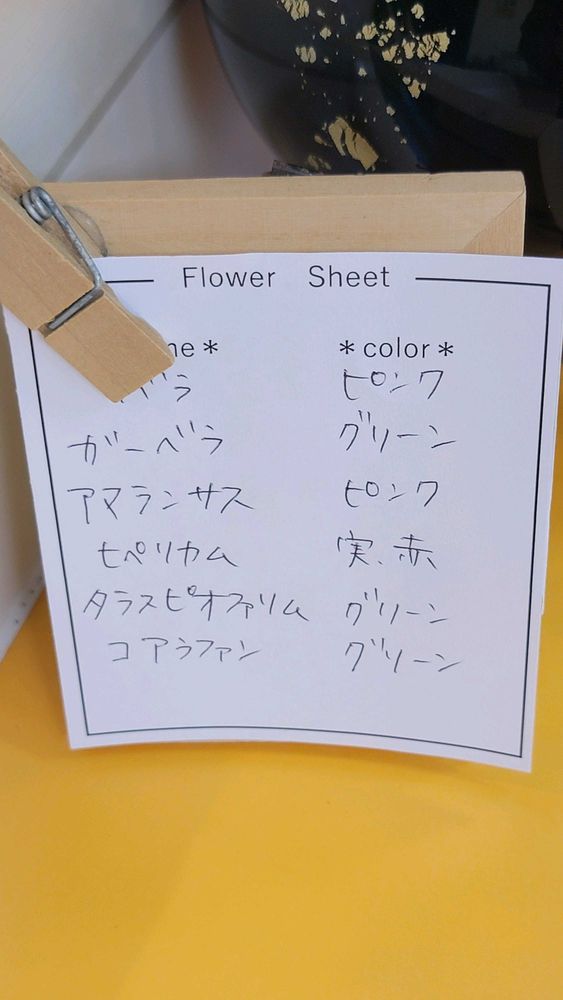 Flower Sheet
*color*
バラ ピンク
ガーベラ グリーン
アマランサス ピンク
ヒペリカム 実、赤
タラスピオファリム グリーン
コアラファン グリーン